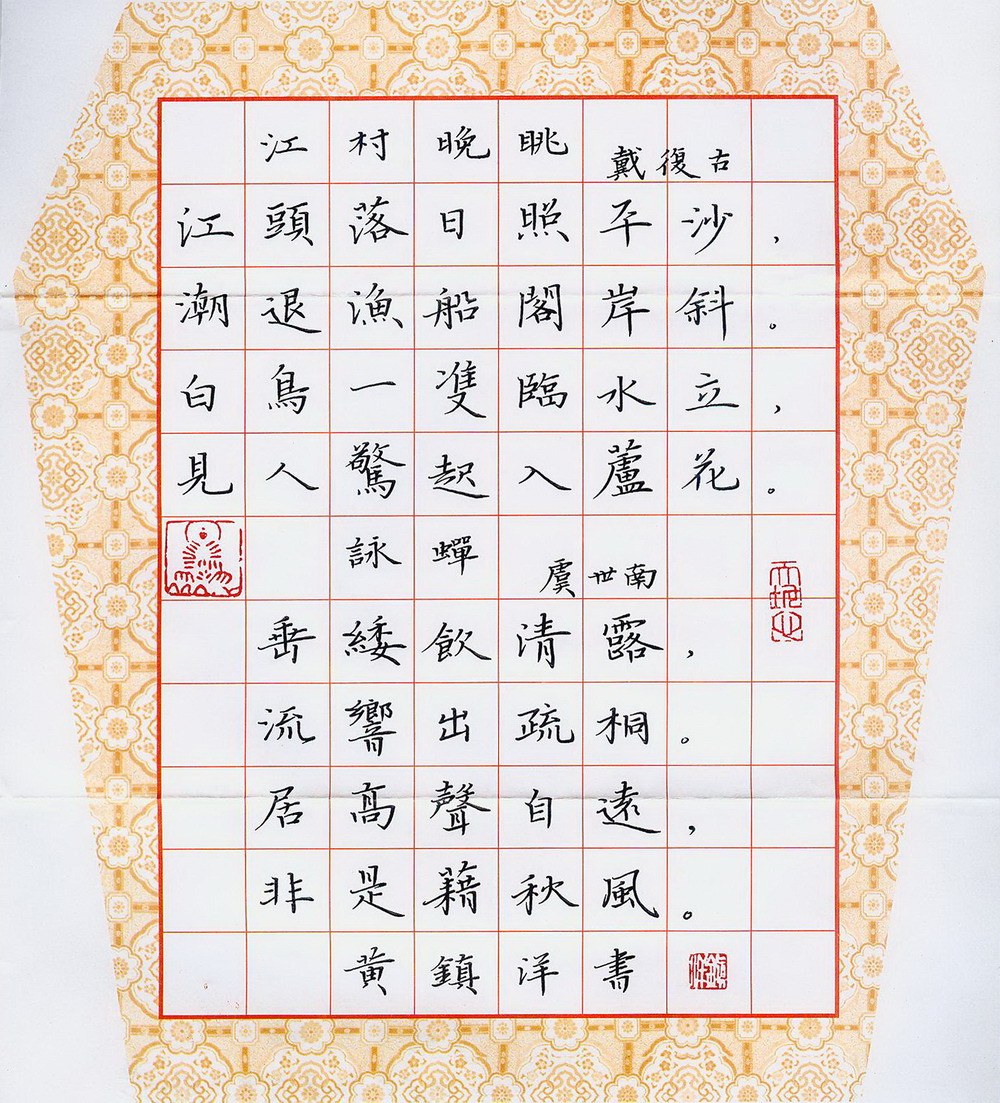 江村晚眺 戴復古
江頭落日照平沙，
潮退漁船閣岸斜。
白鳥一隻臨水立，
見人驚起入蘆花。
詠蟬 虞世南
垂緌飲清露，
流響出疏桐。
居高聲自遠，
非是藉秋風。
黃鎮洋書